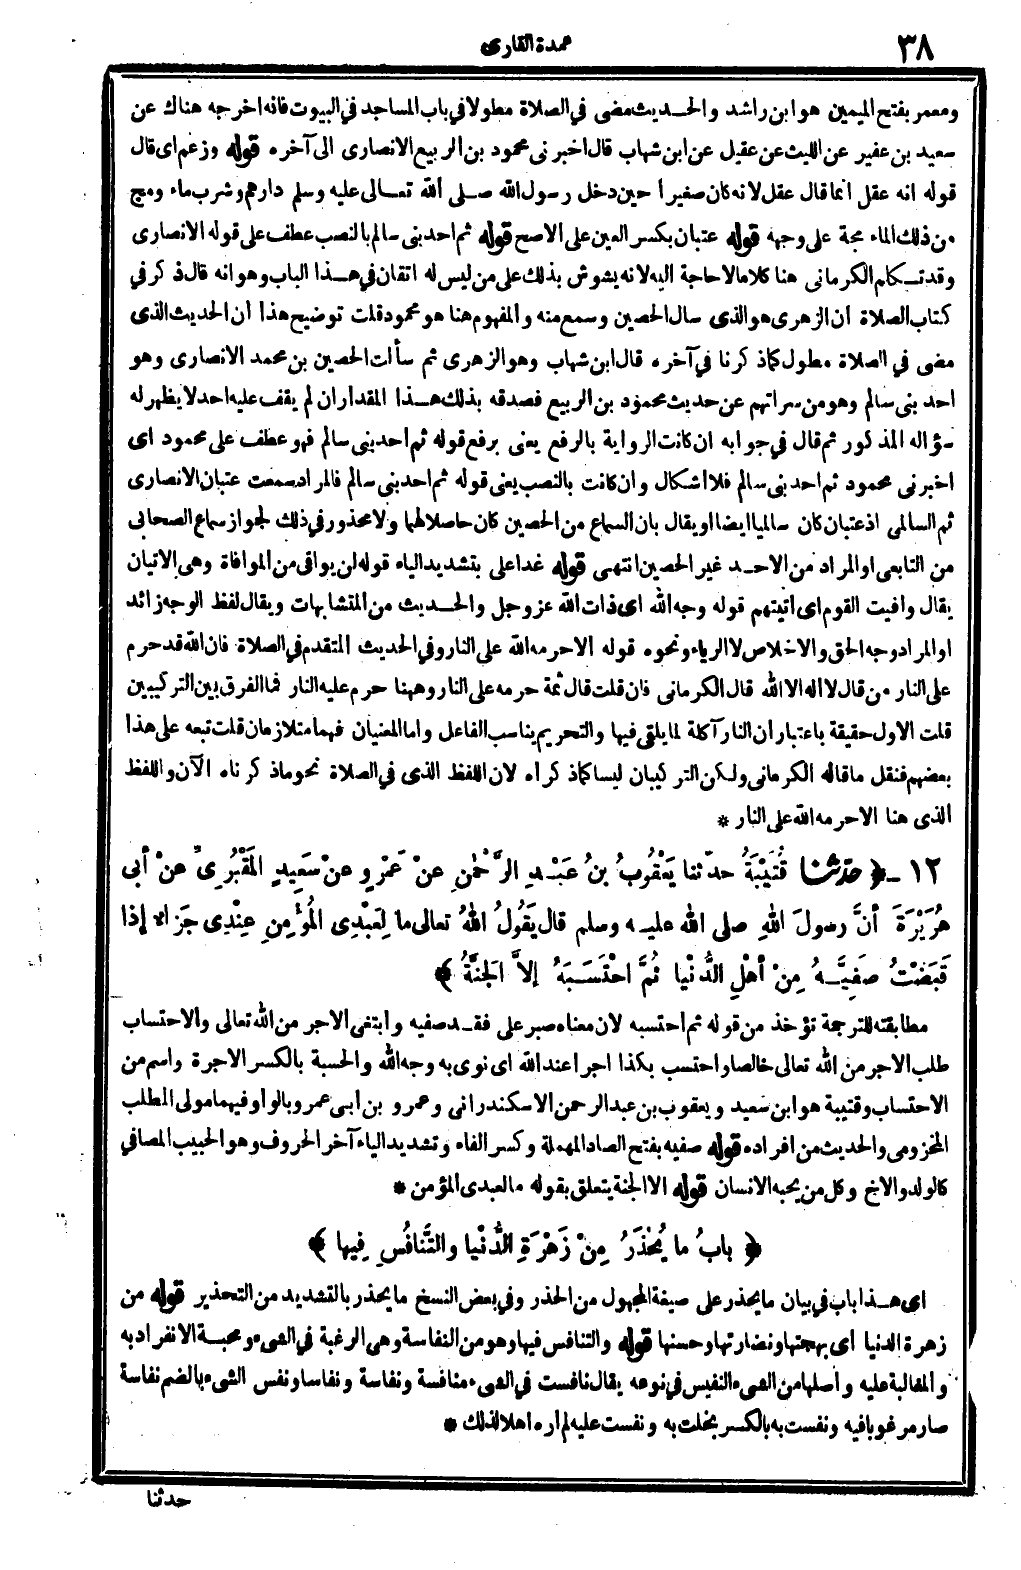 ٣٨
عمدة القارى
ومعمر بفتح الميمين هو ابن راشد والحديث مضى في الصلاة مطولا في باب المساجد في البيوت فانه اخرجه هناك عن
سعيد بن عفير عن الليث عن عقيل عن ابن شهاب قال اخبرنى محمود بن الربيع الانصارى الى آخره قوله وزعم اى قال
قوله انه عقل انما قال عقل لانه كان صغيرا حين دخل رسول الله صلى الله تعالى عليه وسلم دارهم وشرب ماء ومج
من ذلك الماء مجة على وجهه قوله عتبان بكسر العين على الاصح قوله ثم احد بنى سالم بالنصب عطف على قوله الانصارى
وقد تكلم الكرمانى هنا كلاما لا حاجة اليه لانه يشوش بذلك على من ليس له اتقان في هذا الباب وهو انه قال ذكر في
كتاب الصلاة ان الزهرى هو الذى سال الحصين وسمع منه والمفهوم هنا هو محمود قلت توضيح هذا ان الحديث الذى
مضى في الصلاة مطول كما ذكرنا في آخره قال ابن شهاب وهو الزهرى ثم سألت الحصين بن محمد الانصارى وهو
احد بنى سالم وهو من سراتهم عن حديث محمود بن الربيع فصدقه بذلك هذا المقدار ان لم يقف عليه احد لا يظهر له
سؤاله المذكور ثم قال في جوابه ان كانت الرواية بالرفع يعنى برفع قوله ثم احد بنى سالم فهو عطف على محمود اى
اخبرنى محمود ثم احد بنى سالم فلا اشكال وان كانت بالنصب يعنى قوله ثم احد بنى سالم فالمراد سمعت عتبان الانصارى
ثم السالمى اذ عتبان كان سالميا ايضا او يقال بان السماع من الحصين كان حاصلا لهما ولا محذور في ذلك لجواز سماع الصحابى
من التابعى او المراد من الاحد غير الحصين انتهى قوله غدا على بتشديد الياء قوله لن يوافى من الموافاة وهى الاتيان
يقال وافيت القوم اى اتيتهم قوله وجه الله اى ذات الله عز وجل والحديث من المتشابهات ويقال لفظ الوجه زائد
او المراد وجه الحق والاخلاص لا الرياء ونحوه قوله الا حرمه الله على النار وفي الحديث المتقدم في الصلاة فان الله قد حرم
على النار من قال لا اله الا الله قال الكرمانى فان قلت قال ثمة حرمه على النار وههنا حرم عليه النار فما الفرق بين التركيبين
قلت الاول حقيقة باعتبار ان النار آكلة لما يلقى فيها والتحريم يناسب الفاعل واما المعنيان فهما متلازمان قلت تبعه على هذا
بعضهم فنقل ما قاله الكرمانى ولكن التركيبان ليسا كما ذكراه لان اللفظ الذى في الصلاة نحو ما ذكرناه الآن واللفظ
الذى هنا الا حرمه الله على النار *
١٢ - ﴿ حَدّثنا قُتَيْبَةُ حدّثنا يَعْقُوبُ بنُ عَبْدِ الرَّحْمٰنِ عنْ عَمْرٍو عنْ سَعِيدٍ المَقْبُرِىِّ عنْ أبى
هُرَيْرَةَ أنَّ رسولَ اللهِ صلى الله عليه وسلم قال يَقُولُ اللهُ تعالى ما لِعَبْدِى المُؤْمِنِ عِنْدِى جَزَاءٌ إذا
قَبَضْتُ صَفِيَّهُ مِنْ أهْلِ الدُّنْيا ثُمَّ احْتَسَبَهُ إلاَّ الجَنَّةُ ﴾
مطابقته للترجمة تؤخذ من قوله ثم احتسبه لان معناه صبر على فقد صفيه وابتغى الاجر من الله تعالى والاحتساب
طلب الاجر من الله تعالى خالصا واحتسب بكذا اجرا عند الله اى نوى به وجه الله والحسبة بالكسر الاجرة واسم من
الاحتساب وقتيبة هو ابن سعيد ويعقوب بن عبد الرحمن الاسكندرانى وعمرو بن ابى عمرو بالواو فيهما مولى المطلب
المخزومى والحديث من افراده قوله صفيه بفتح الصاد المهملة وكسر الفاء وتشديد الياء آخر الحروف وهو الحبيب المصافي
كالولد والاخ وكل من يحبه الانسان قوله الا الجنة يتعلق بقوله ما لعبدى المؤمن *
﴿ بابُ ما يُحْذَرُ مِنْ زَهْرَةِ الدُّنْيا والتَّنافُسِ فِيها ﴾
اى هذا باب في بيان ما يحذر على صيغة المجهول من الحذر وفي بعض النسخ ما يحذر بالتشديد من التحذير قوله من
زهرة الدنيا اى بهجتها ونضارتها وحسنها قوله والتنافس فيها وهو من النفاسة وهى الرغبة في الشىء ومحبة الانفراد به
والمغالبة عليه وأصلها من الشىء النفيس في نوعه يقال نافست في الشىء منافسة ونفاسة ونفاسا ونفس الشىء بالضم نفاسة
صار مرغوبا فيه ونفست به بالكسر بخلت به ونفست عليه لم أره اهلا لذلك *
حدثنا